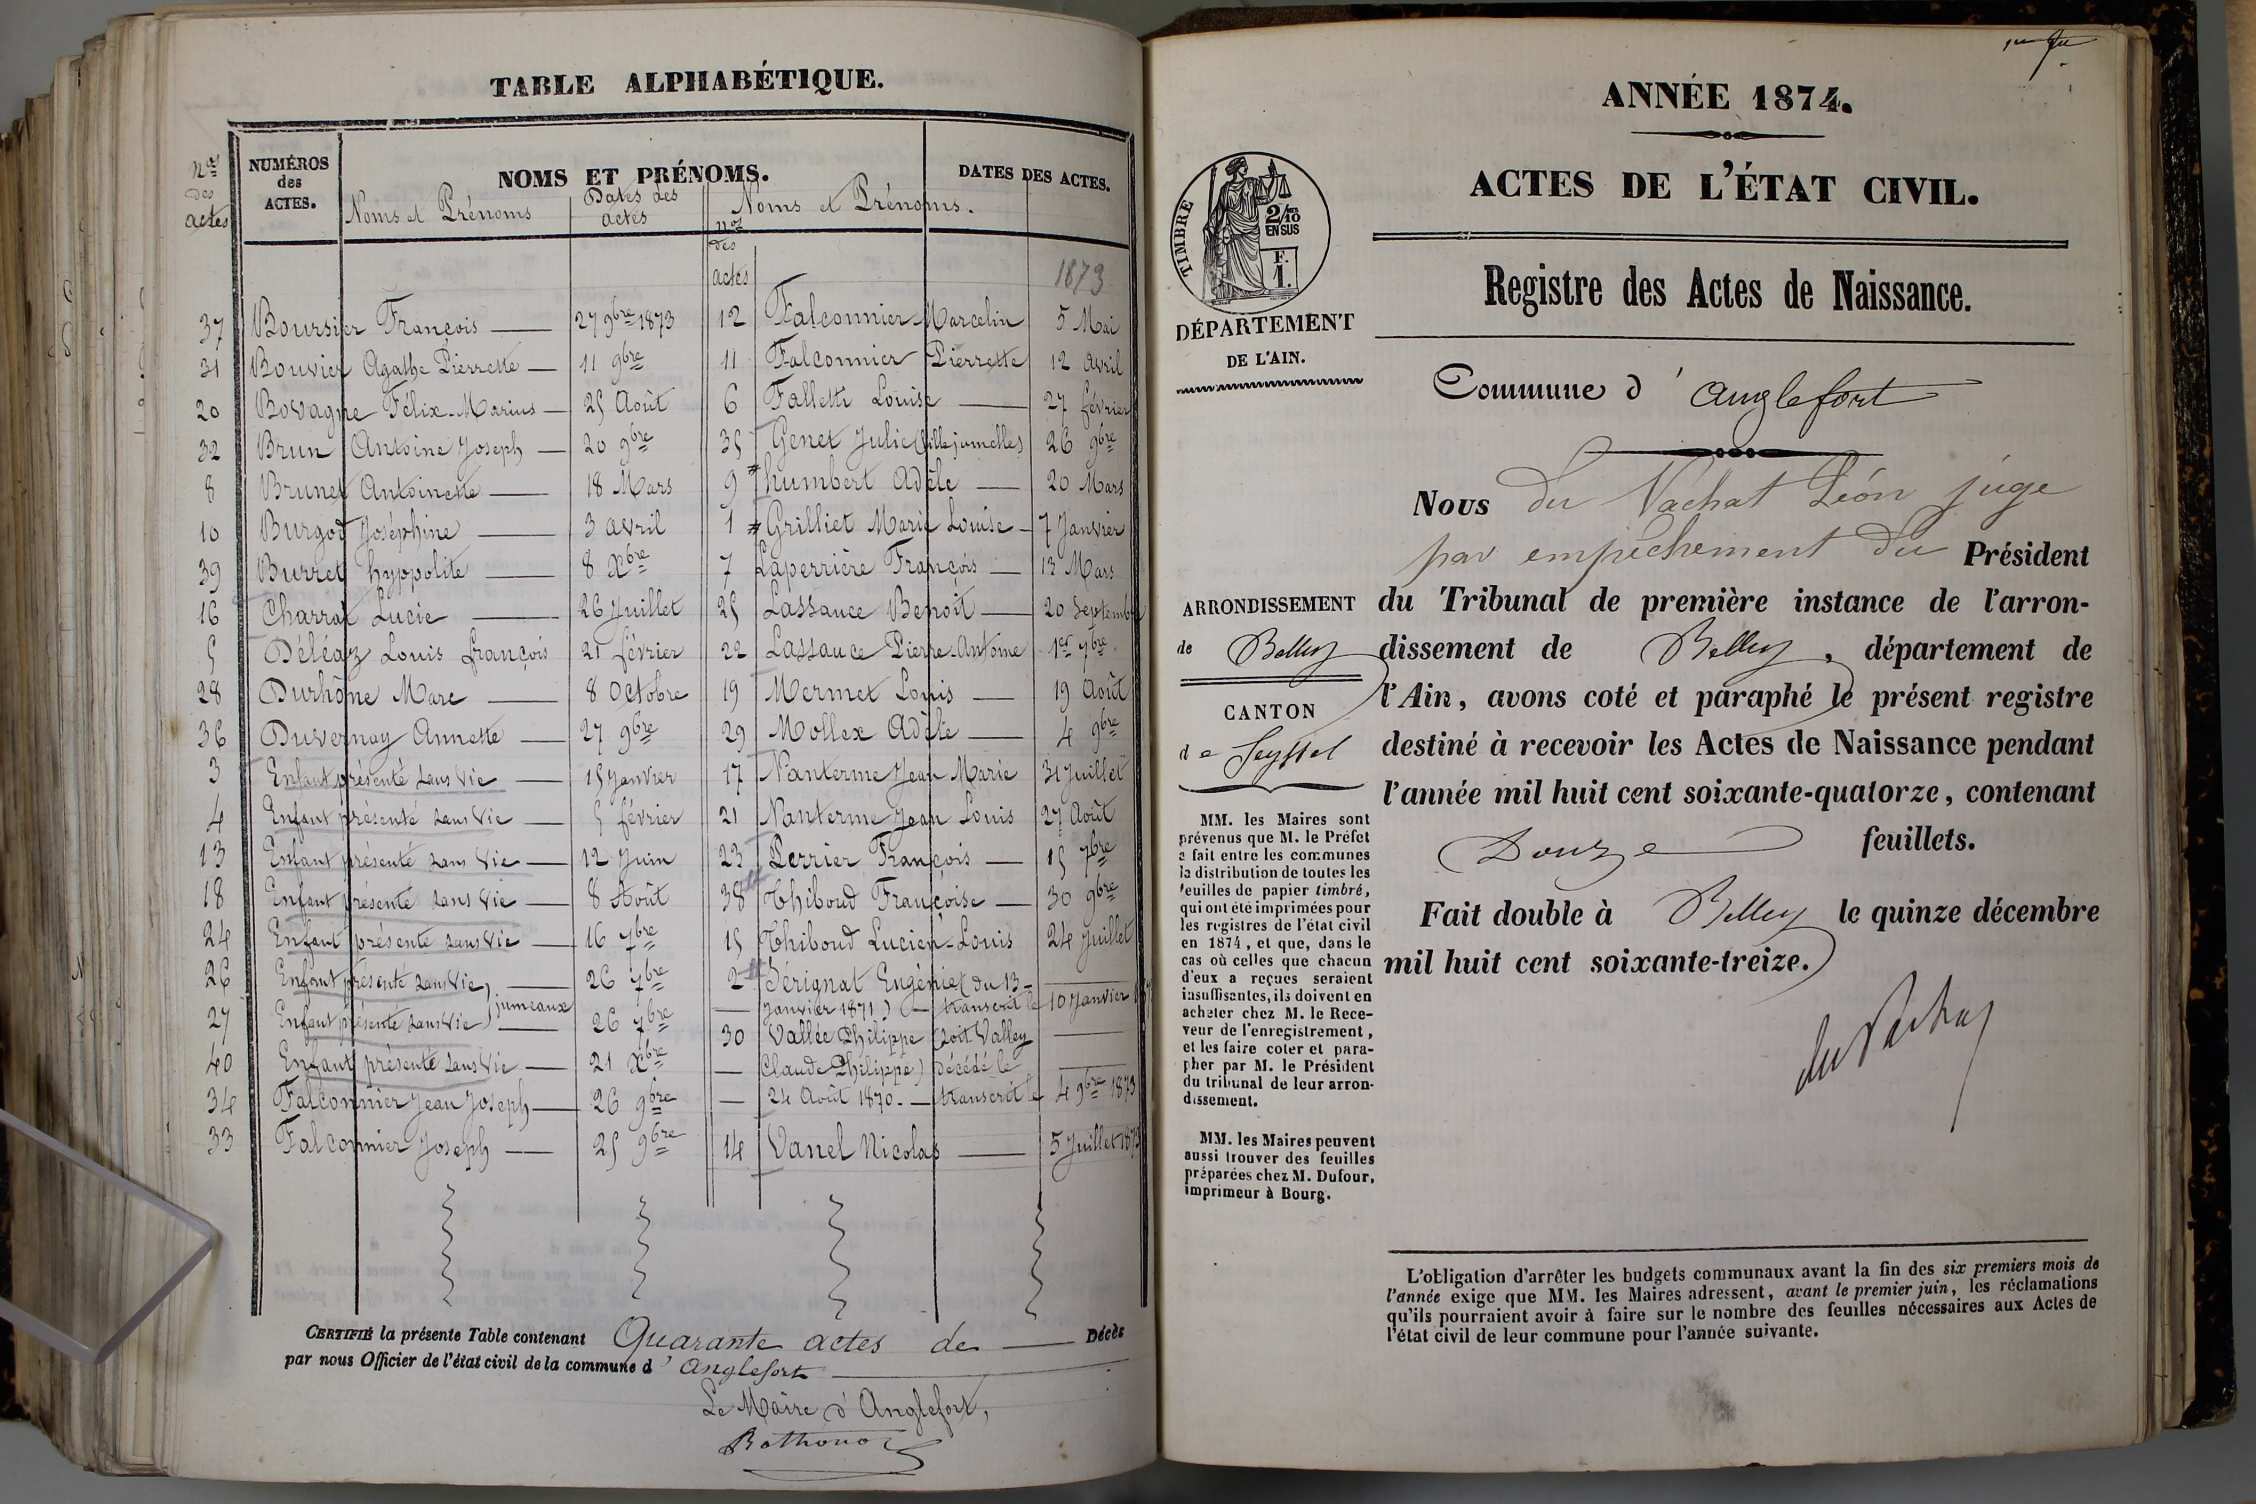 TABLE ALPHABÉTIQUE.
Nos des actes
NUMÉROS des ACTES.
NOMS ET PRÉNOMS.
DATES DES ACTES.
Noms et Prénoms
Dates des actes
Nos des actes
Noms et Prénoms.
1873
37 Boursier François — 27 9bre 1873
31 Bouvier Agathe Pierrette — 11 9bre
20 Bovagne Félix-Marius — 25 Août
32 Brun Antoine Joseph — 20 9bre
8 Brunet Antoinette — 18 Mars
10 Burgod Joséphine — 3 avril
39 Burret hyppolite — 8 Xbre
16 Charrat Lucie — 26 Juillet
5 Déléaz Louis françois 21 février
28 Durhône Marc — 8 Octobre
36 Duvernay Annette — 27 9bre
3 Enfant présenté sans vie — 15 Janvier
4 Enfant présenté sans vie — 5 février
13 Enfant présenté sans vie — 12 Juin
18 Enfant présenté sans vie — 8 Août
24 Enfant présenté sans vie — 16 7bre
26 Enfant présenté sans vie, — 26 7bre
jumeaux
27 Enfant présenté sans vie — 26 7bre
40 Enfant présenté sans vie — 21 Xbre
34 Falconnier Jean Joseph — 26 9bre
33 Falconnier Joseph — 25 9bre
12 Falconnier Marcelin 5 Mai
11 Falconnier Pierrette 12 avril
6 Falletti Louise — 27 février
35 Genet Julie (fille jumelles) 26 9bre
9 humbert Adèle — 20 Mars
1 Grilliet Marie Louise - 7 Janvier
7 Laperrière François — 13 Mars
25 Lassauce Benoît — 20 Septembre
22 Lassauce Pierre-Antoine 1er 7bre
19 Mermet Louis — 19 Août
29 Mollex Adèle — 4 9bre
17 Nanterme Jean Marie 31 Juillet
21 Nanterme Jean Louis 27 Août
23 Perrier François — 15 7bre
38 Thiboud Françoise — 30 9bre
15 Thiboud Lucien-Louis 24 Juillet
2 Sérignat Eugénie (du 13 —
— Janvier 1871) (— transcrit le 10 Janvier
30 Vallée Philippe (soit Valley —
— Claude Philippe) décédé le —
— 24 Août 1870. — transcrit le 4 9bre 1873
14 Vanel Nicolas — 5 Juillet 1873
CERTIFIÉ la présente Table contenant Quarante actes de — Décès
par nous Officier de l'état civil de la commune d' Anglefort
Le Maire d'Anglefort,
ANNÉE 1874.
ACTES DE L'ÉTAT CIVIL.
TIMBRE
2/10 EN SUS
F. 1.
DÉPARTEMENT
DE L'AIN.
Registre des Actes de Naissance.
Commune d' Anglefort
Nous du Vachat Léon juge
par empêchement du Président
du Tribunal de première instance de l'arron-
dissement de Belley, département de
l'Ain, avons coté et paraphé le présent registre
destiné à recevoir les Actes de Naissance pendant
l'année mil huit cent soixante-quatorze, contenant
Douze feuillets.
Fait double à Belley le quinze décembre
mil huit cent soixante-treize.
du Vachat
ARRONDISSEMENT
de Belley
CANTON
de Seyssel
MM. les Maires sont
prévenus que M. le Préfet
a fait entre les communes
la distribution de toutes les
feuilles de papier timbré,
qui ont été imprimées pour
les registres de l'état civil
en 1874, et que, dans le
cas où celles que chacun
d'eux a reçues seraient
insuffisantes, ils doivent en
acheter chez M. le Rece-
veur de l'enregistrement,
et les faire coter et para-
pher par M. le Président
du tribunal de leur arron-
dissement.
MM. les Maires peuvent
aussi trouver des feuilles
préparées chez M. Dufour,
imprimeur à Bourg.
L'obligation d'arrêter les budgets communaux avant la fin des six premiers mois de
l'année exige que MM. les Maires adressent, avant le premier juin, les réclamations
qu'ils pourraient avoir à faire sur le nombre des feuilles nécessaires aux Actes de
l'état civil de leur commune pour l'année suivante.